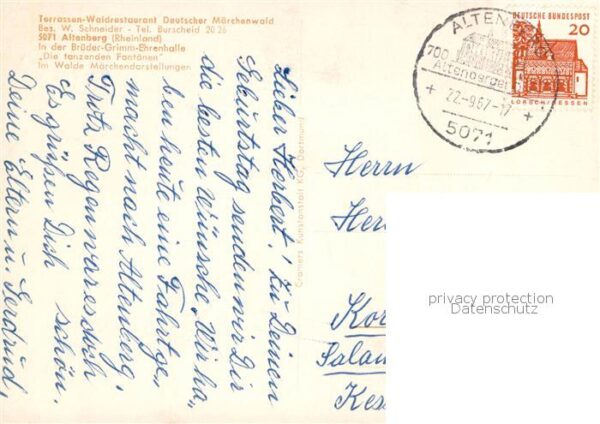 Terrassen-Waldrestaurant Deutscher Märchenwald
Bes. W. Schneider - Tel. Burscheid 20 26
5071 Altenberg (Rheinland)
In der Brüder-Grimm-Ehrenhalle
„Die tanzenden Fontänen"
Im Walde Märchendarstellungen
Lieber Herbert! Zu Deinem
Geburtstag senden wir Dir
die besten Wünsche. Wir ha„
ben heute eine Fahrt ge„
macht nach Altenberg.
Trotz Regen war es doch
schön.
Es grüßen Dich
Deine Eltern u. Gerdrud.
Cramers Kunstanstalt KG, Dortmund
ALTENBERG
700
Altenberger
22.-9.67-17
5071
DEUTSCHE BUNDESPOST
20
LORSCH/HESSEN
Herrn
Her
Kor
Salam
Kes
privacy protection
Datenschutz